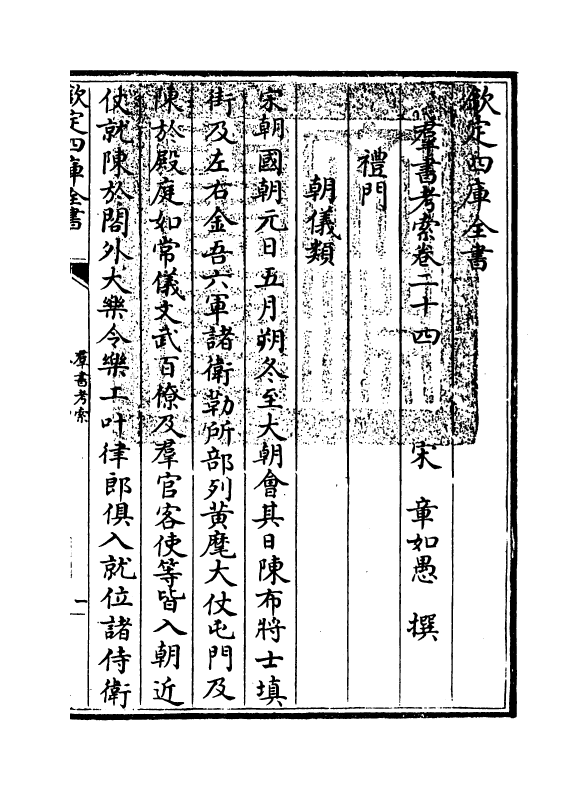 欽定四庫全書
羣書考索卷二十四　宋　章如愚　撰
禮門
朝儀類
宋朝國朝元日五月朔冬至大朝會其日陳布將士填
街及左右金吾六軍諸衛勒所部列黃麾大仗屯門及
陳於殿庭如常儀文武百僚及羣官客使等皆入朝近
仗就陳於閤外大樂令樂工叶律郎俱入就位諸侍衛
欽定四庫全書
羣書考索
一